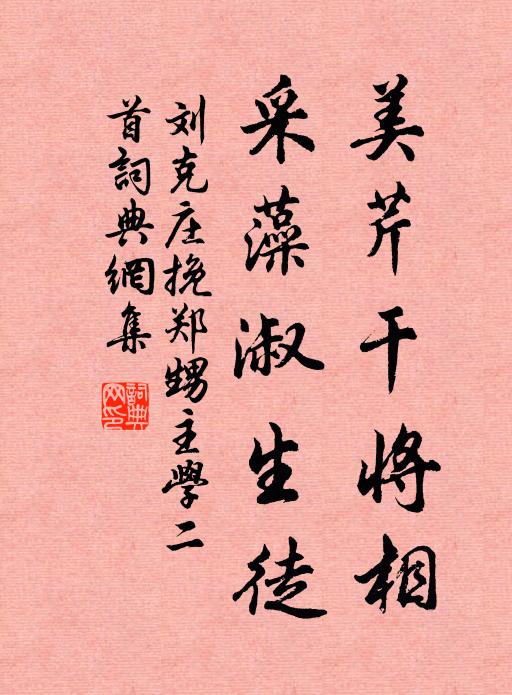 美芹干将相
采藻淑生徒
刘克庄挽郑甥主学二
首詞典網集
詞典網印